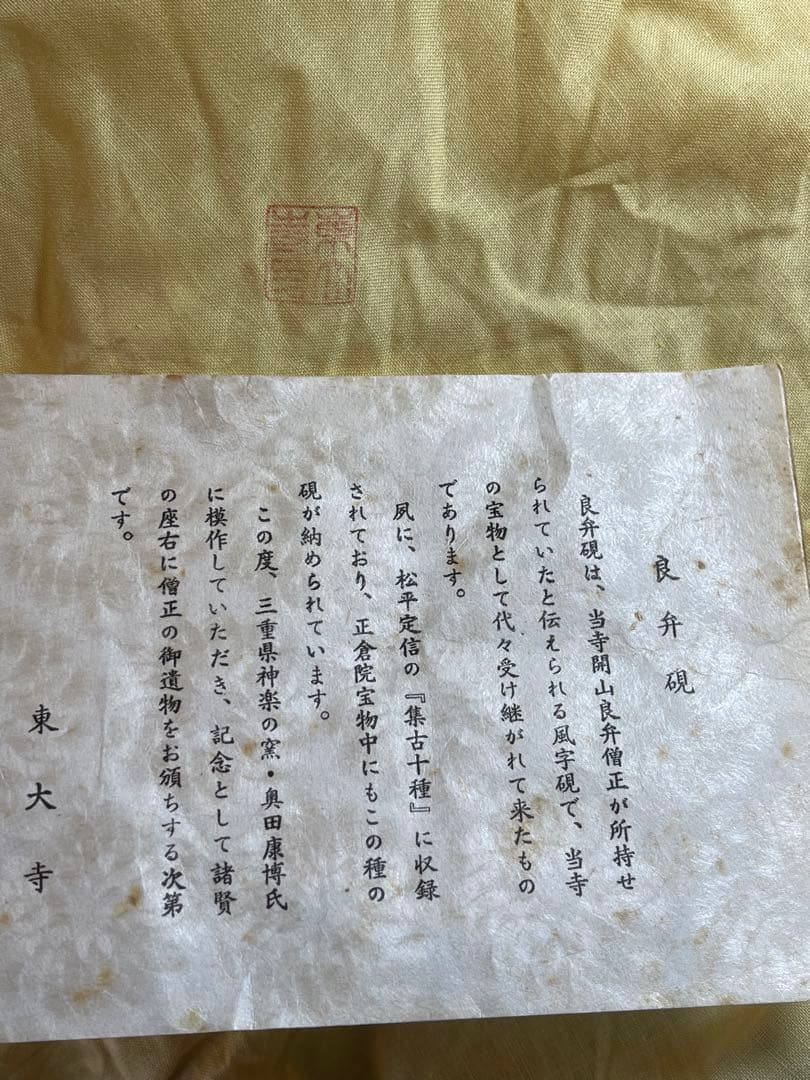 良弁硯
良弁硯は、当寺開山良弁僧正が所持せ
られていたと伝えられる風字硯で、当寺
の宝物として代々受け継がれて来たもの
であります。
夙に、松平定信の『集古十種』に収録
されており、正倉院宝物中にもこの種の
硯が納められています。
この度、三重県神楽の窯・奥田康博氏
に模作していただき、記念として諸賢
の座右に僧正の御遺物をお頒ちする次第
です。
東大寺